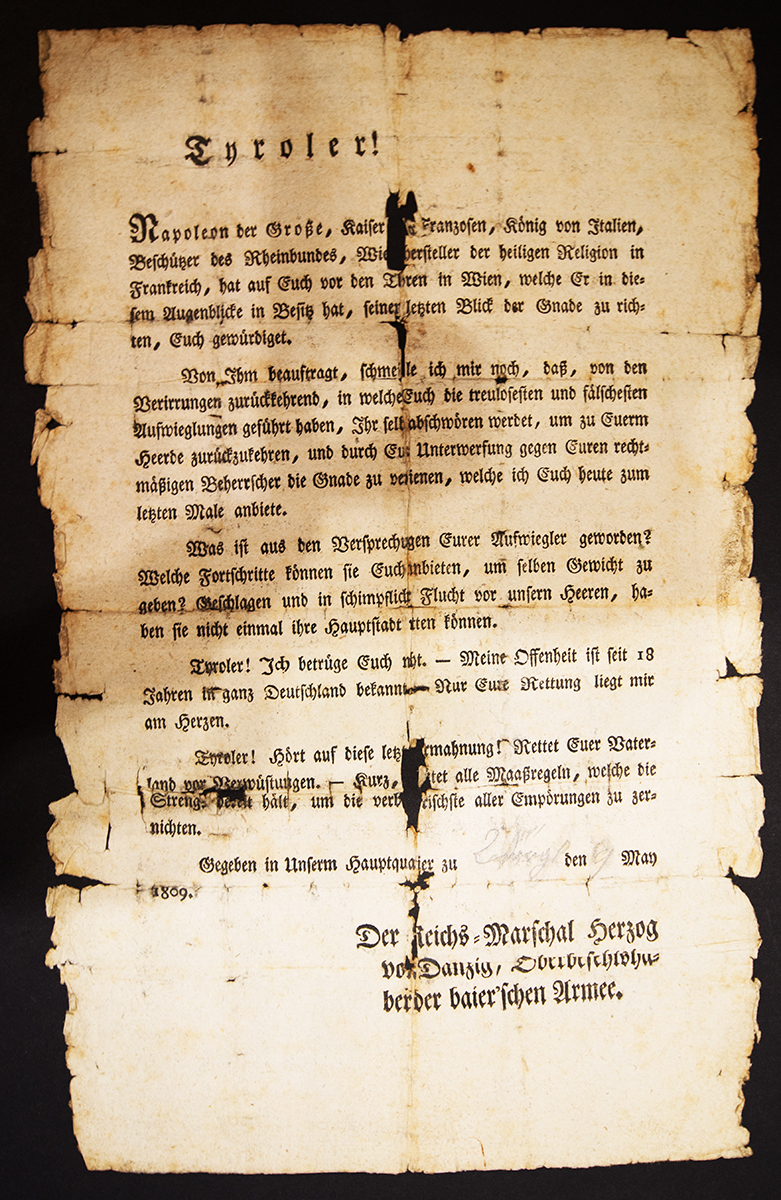 Tyroler!
Napoleon der Große, Kaiser Franzosen, König von Italien,
Beschützer des Rheinbundes, Wie hersteller der heiligen Religion in
Frankreich, hat auf Euch vor den Thren in Wien, welche Er in die-
sem Augenblicke in Besitz hat, seinen letzten Blick der Gnade zu rich-
ten, Euch gewürdiget.
Von Ihm beauftragt, schmeile ich mir noch, daß, von den
Verirrungen zurückkehrend, in welche Euch die treulosesten und fälschesten
Aufwieglungen geführt haben, Ihr selb abschwören werdet, um zu Euerm
Heerde zurückzukehren, und durch Eu Unterwerfung gegen Euren recht-
mäßigen Beherrscher die Gnade zu verienen, welche ich Euch heute zum
letzten Male anbiete.
Was ist aus den Versprechugen Eurer Aufwiegler geworden?
Welche Fortschritte können sie Euch anbieten, um selben Gewicht zu
geben? Geschlagen und in schimpflich Flucht vor unsern Heeren, ha-
ben sie nicht einmal ihre Hauptstadt tten können.
Tyroler! Ich betrüge Euch nht. — Meine Offenheit ist seit 18
Jahren in ganz Deutschland bekannt. — Nur Eure Rettung liegt mir
am Herzen.
Tyroler! Hört auf diese letz ermahnung! Rettet Euer Vater-
land vor Verwüstungen. — Kurz, tet alle Maaßregeln, welche die
Streng bereit hält, um die verb rischste aller Empörungen zu zer-
nichten.
Gegeben in Unserm Hauptquaier zu den 9 May
1809.
Der Reichs-Marschal Herzog
von Danzig, Oberbefehlsha-
ber der baier'schen Armee.